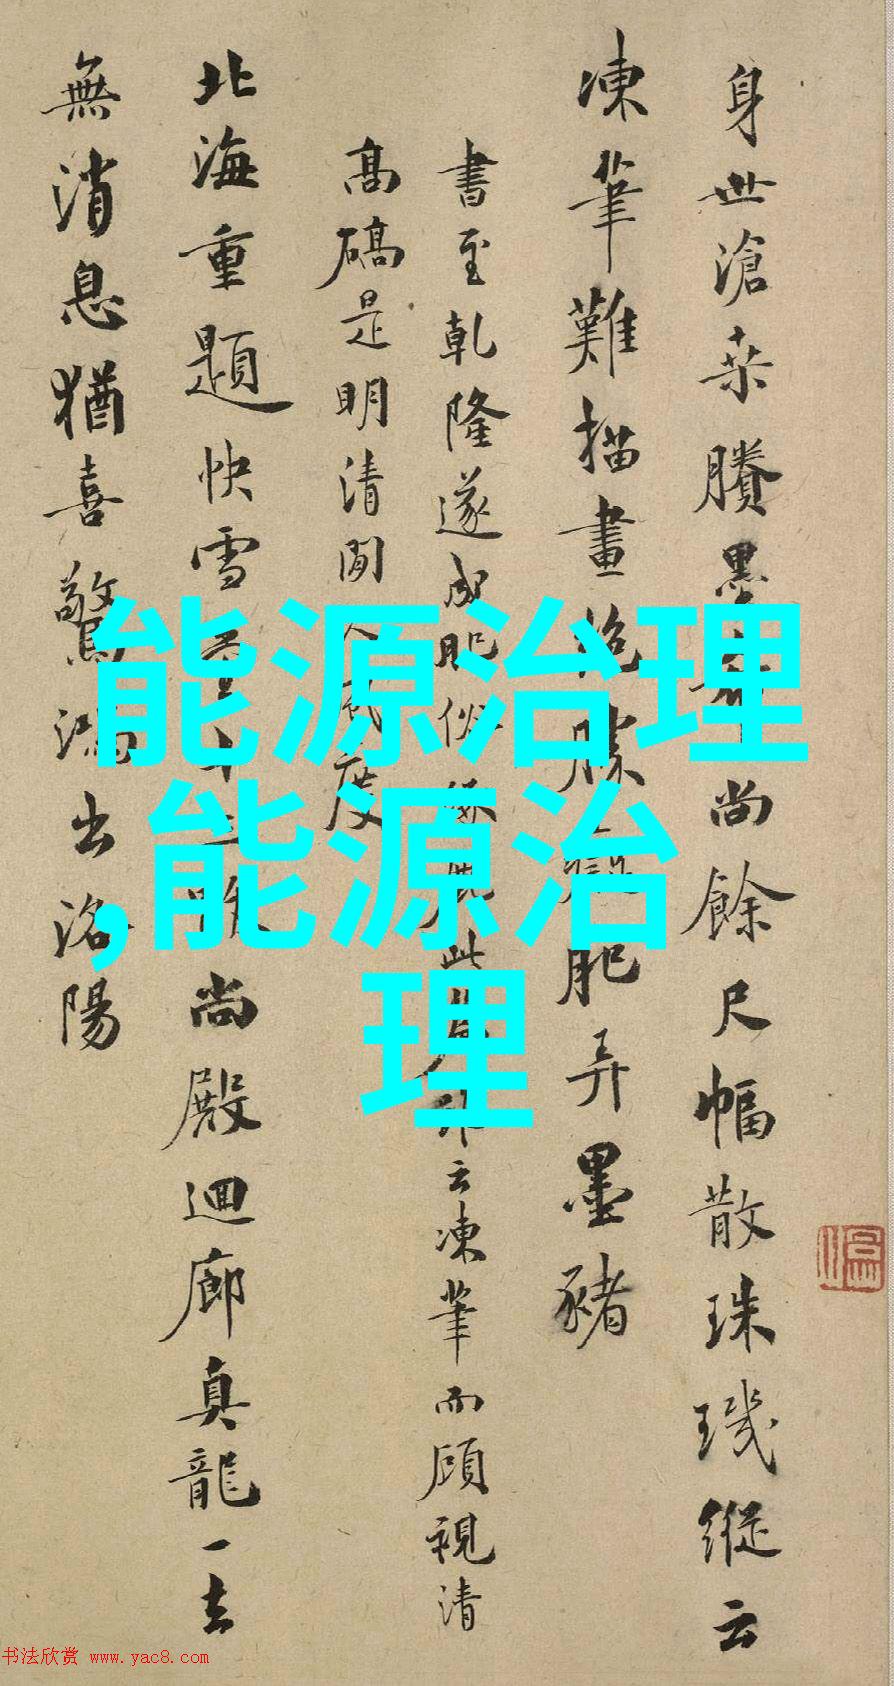 身世滄桑賸墨
尚餘尺幅散珠璣縱云
凍筆難描畫
肥弄墨豬
書至乾隆遂成肥俗
此
云凍筆而顧視清
高碻是明清間人
度
北海重題快雪
尚殿迴廊真龍一去
無消息猶喜驚鴻出洛陽
能源治理
,能源治
理
书法欣赏 www.yac8.com